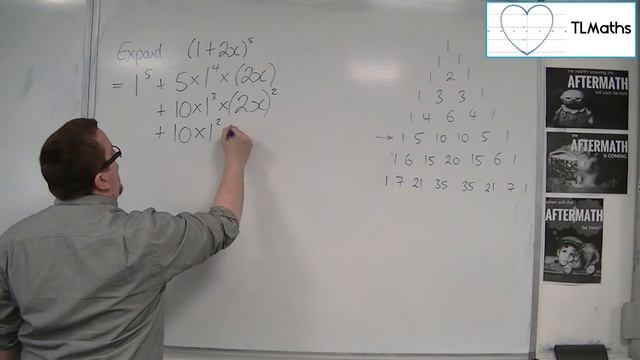 Expand (1+2x)^5
= 1^5 + 5×1^4×(2x)
+ 10×1^3×(2x)^2
+ 10×1^2
1
1 1
1 2 1
1 3 3 1
1 4 6 4 1
→ 1 5 10 10 5 1
1 6 15 20 15 6 1
1 7 21 35 35 21 7 1
TLMaths
AFTERMATH
will soon be here
AFTERMATH
is COMING
When will the
AFTERMATH
be here?